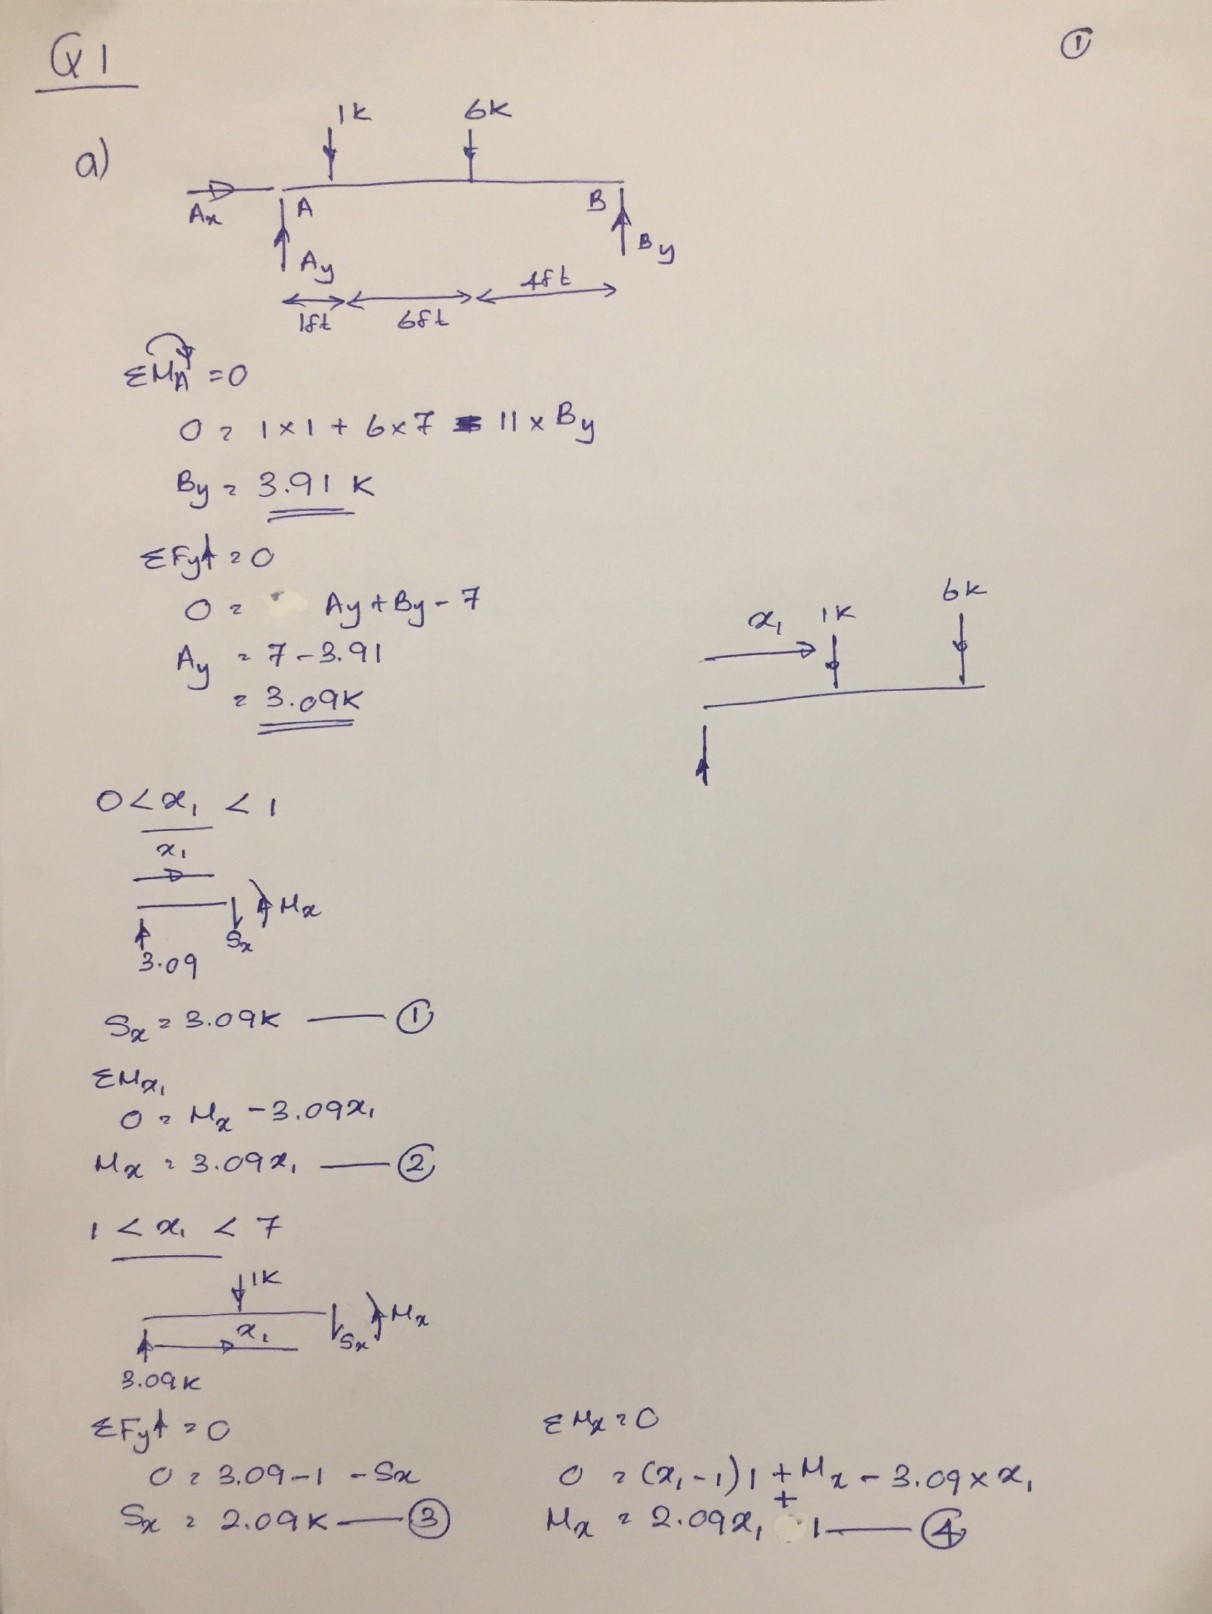 Q1
①
a)
1K 6K
Ax A B
Ay By
1ft 6ft 4ft
ΣMA = 0
0 = 1×1 + 6×7 - 11×By
By = 3.91 K
ΣFy↑ = 0
0 = Ay + By - 7
Ay = 7 - 3.91
= 3.09K
x₁ 1K 6K
0 < x₁ < 1
x₁
Sx Mx
3.09
Sx = 3.09K —— ①
ΣMx₁
0 = Mx - 3.09x₁
Mx = 3.09x₁ —— ②
1 < x₁ < 7
1K
x₁ Sx Mx
3.09K
ΣFy↑ = 0
0 = 3.09 - 1 - Sx
Sx = 2.09K —— ③
ΣMx = 0
0 = (x₁-1)1 + Mx - 3.09 × x₁
Mx = 2.09x₁ + 1 —— ④